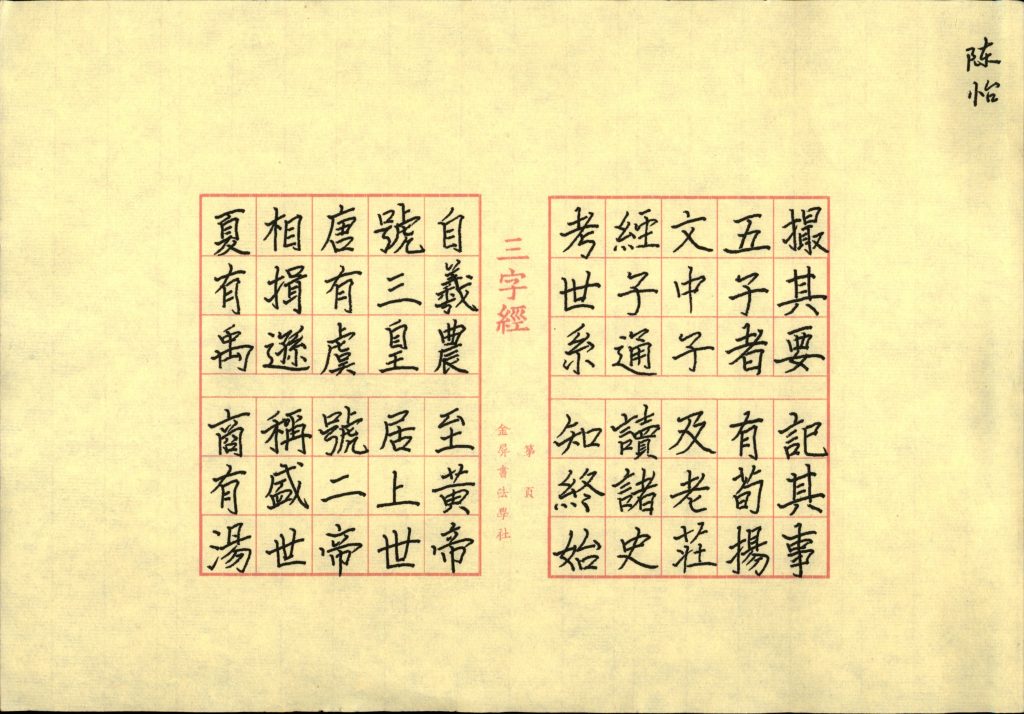 陈怡
撮其要 記其事
五子者 有荀揚
文中子 及老莊
經子通 讀諸史
考世系 知終始
三字經
第 頁
金屏書法學社
自羲農 至黃帝
號三皇 居上世
唐有虞 號二帝
相揖遜 稱盛世
夏有禹 商有湯